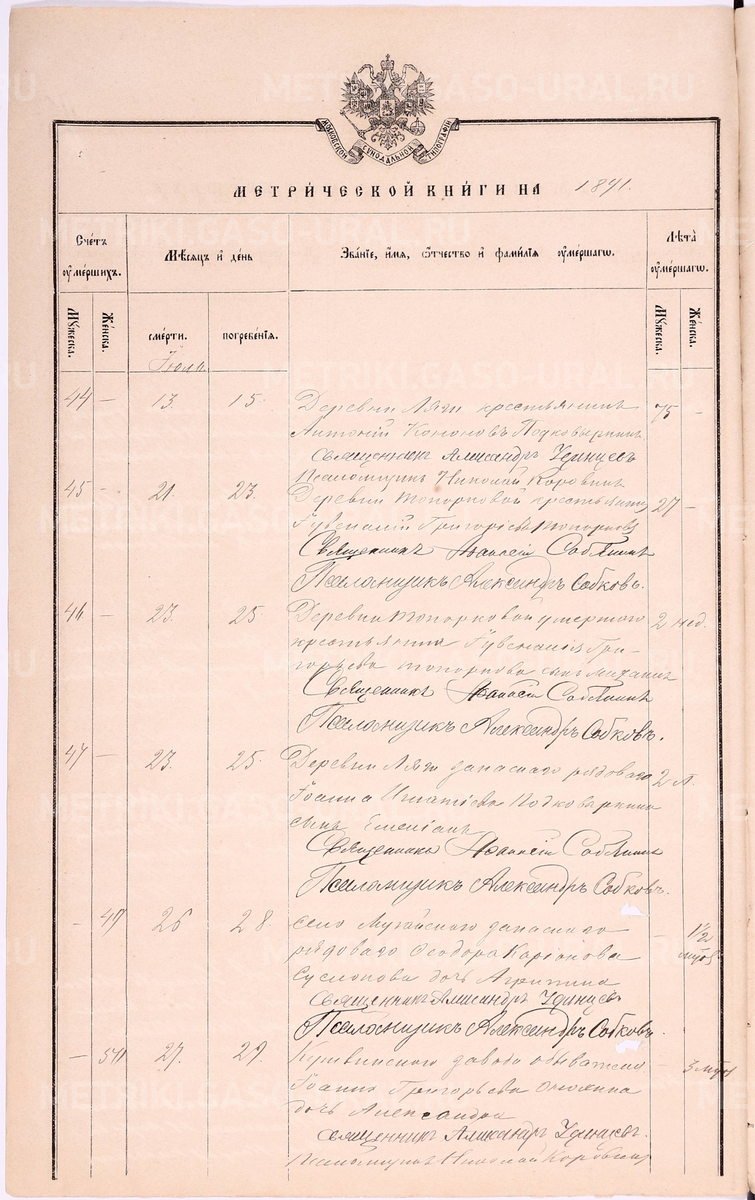 МОСКОВСКОЙ СѴНОДАЛЬНОЙ ТИПОГРАФІИ
МЕТРИ́ЧЕСКОЙ КНИ́ГИ НА 1891.
Сче́тъ ᲂу҆ме́ршихъ.
Мꙋ́жеска.
Же́нска.
Мѣ́сяцъ и҆ де́нь
сме́рти.
погребе́нїя.
Зва́нїе, и҆́мя, ѻ҆́тчество и҆ фами́лїя ᲂу҆ме́ршагѡ.
Лѣ́та ᲂу҆ме́ршагѡ.
Мꙋ́жеска.
Же́нска.
Іюль
44 — 13. 15. Деревни Ляги крестьянинъ 75 —
Антоній Кононовъ Подковыркинъ
Священникъ Александръ Удинцевъ
Псаломщикъ Николай Коровинъ
45 — 21. 23. Деревни Топорковой крестьянинъ 27 —
Іувеналій Григорьевъ Топорковъ
Священникъ Іоаннъ Собянинъ
Псаломщикъ Александръ Собковъ.
46 — 23. 25. Деревни Топорковой умершаго 2 нед.
крестьянина Іувеналія Гри-
горьева Топоркова сынъ Михаилъ
Священникъ Іоаннъ Собянинъ
Псаломщикъ Александръ Собковъ.
47 — 23. 25. Деревни Ляги запаснаго рядоваго 2 л.
Іоанна Игнатіева Подковыркина
сынъ Емеліанъ
Священникъ Іоаннъ Собянинъ
Псаломщикъ Александръ Собковъ.
— 26 28. село запаснаго — 1½
рядоваго Ѳеодора
Суслопова дочь Агрипина
Священникъ Александръ Удинцевъ
Псаломщикъ Александръ Собковъ.
— 27. 29. Кушвинскаго завода обывателя — 3
Іоанна Григорьева
дочь Александра
Священникъ Александръ Удинцевъ.
Псаломщикъ Николай Коровинъ
METRIKI.GASO-URAL.RU